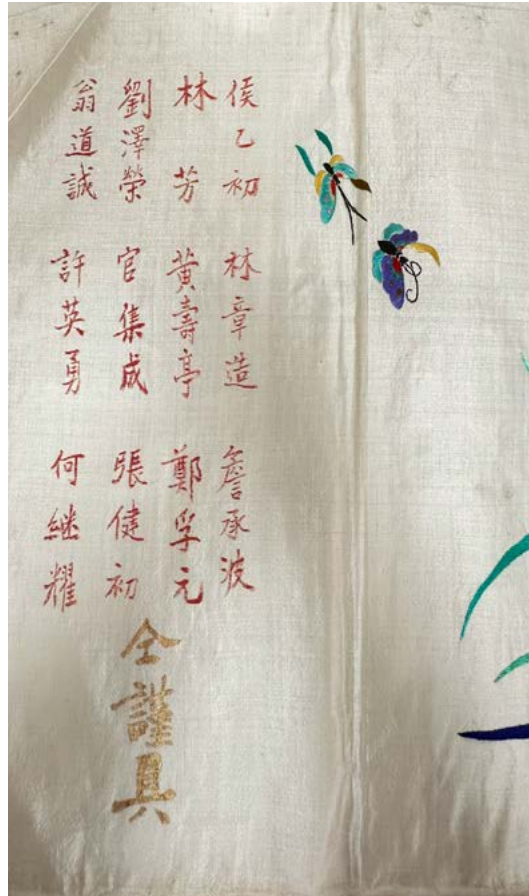 侯乙初 林章造 詹承波
林芳 黄壽亭 鄭孚元
劉澤榮 官集成 張健初
翁道誠 許英勇 何継耀
仝謹具